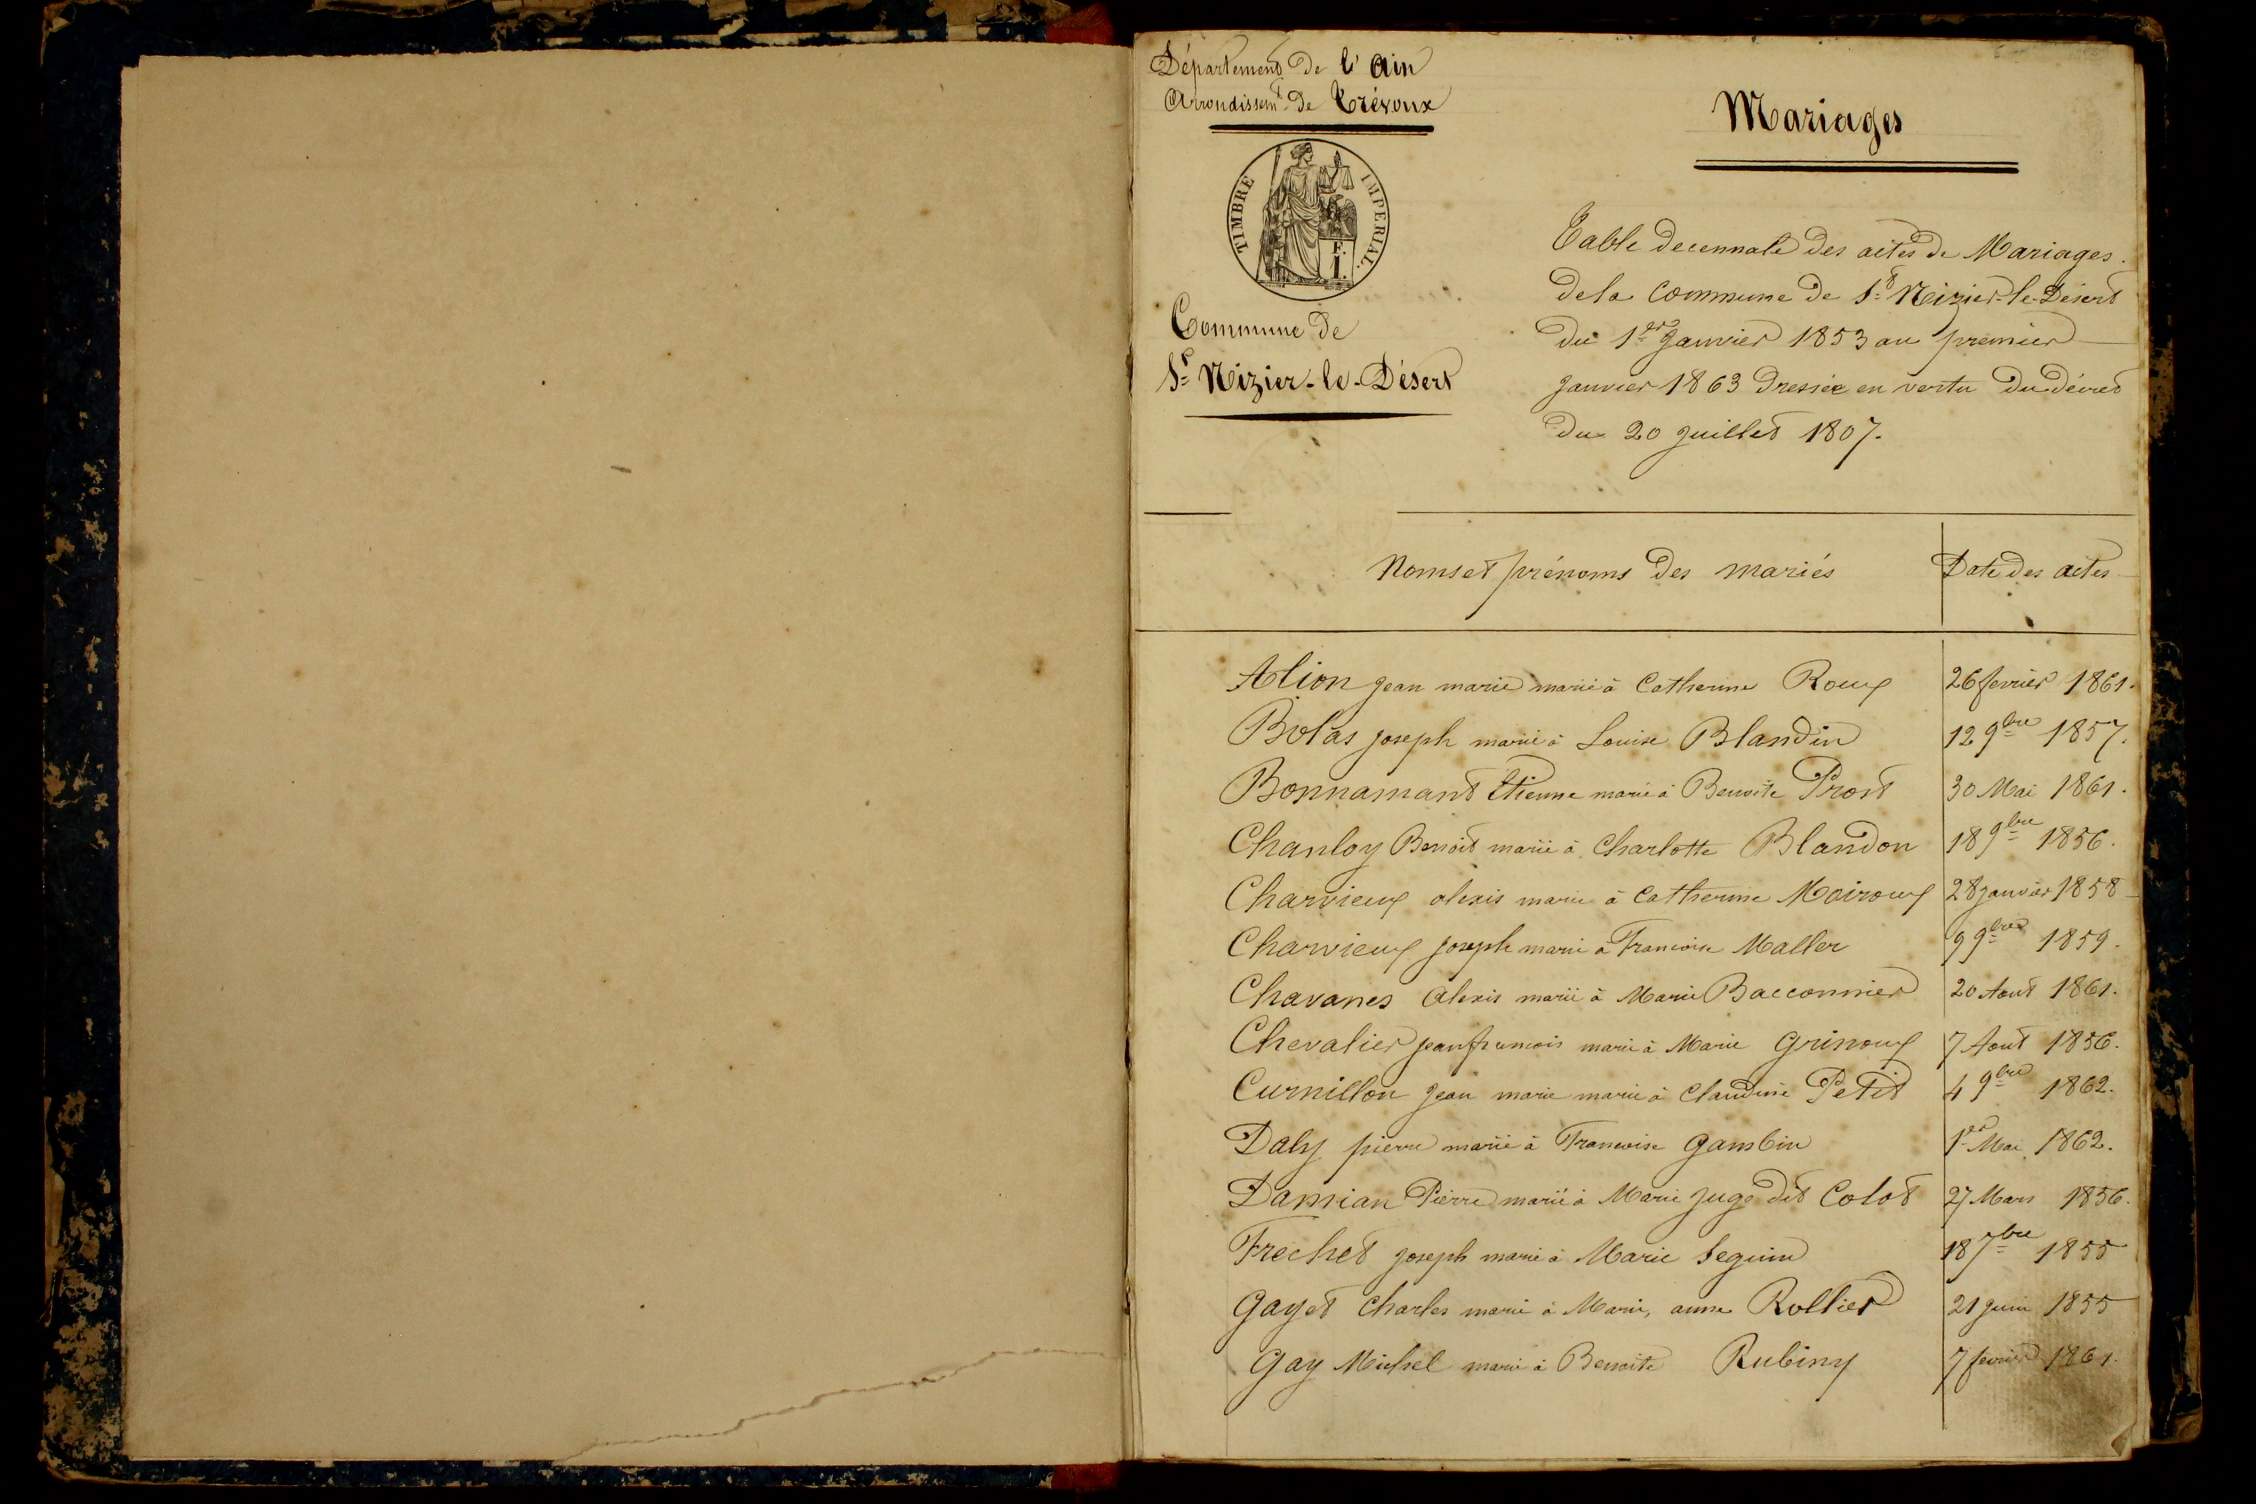 Département de l'Ain
Arrondissemt de Trévoux
TIMBRE IMPERIAL.
E.
I.
Commune de
St Nizier-le-Désert
Mariages
Table decennale des actes de Mariages.
de la Commune de St Nizier-le-Désert
du 1er Janvier 1853 au premier
janvier 1863 Dressée en vertu du décret
du 20 juillet 1807.
Noms et prénoms des mariés Date des actes
Alion jean marie marié à Catherine Roux 26 fevrier 1861.
Bolas joseph marié à Louise Blandin 12 9bre 1857.
Bonnamant Etienne marié à Benoite Prost 30 Mai 1861.
Chanloy Benoit marié à Charlotte Blandon 18 9bre 1856.
Charvieux alexis marié à Catherine Moiroux 28 janvier 1858
Charvieux joseph marié à Francoise Maller 9 9bre 1859.
Chavanes Alexis marié à Marie Bacconnier 20 Aout 1861.
Chevalier jean francois marié à Marie Grinoux 7 Aout 1856.
Curnillon jean marie marié à Claudine Petit 4 9bre 1862.
Daly pierre marié à Francoise Gambin 1er Mai 1862.
Damian Pierre marié à Marie juge dit Colot 27 Mars 1856.
Frechet joseph marié à Marie Seguin 18 7bre 1855
Gayet Charles marié à Marie, anne Rollier 21 juin 1855
Gay Michel marié à Benoite Rubiny 7 fevrier 1861.